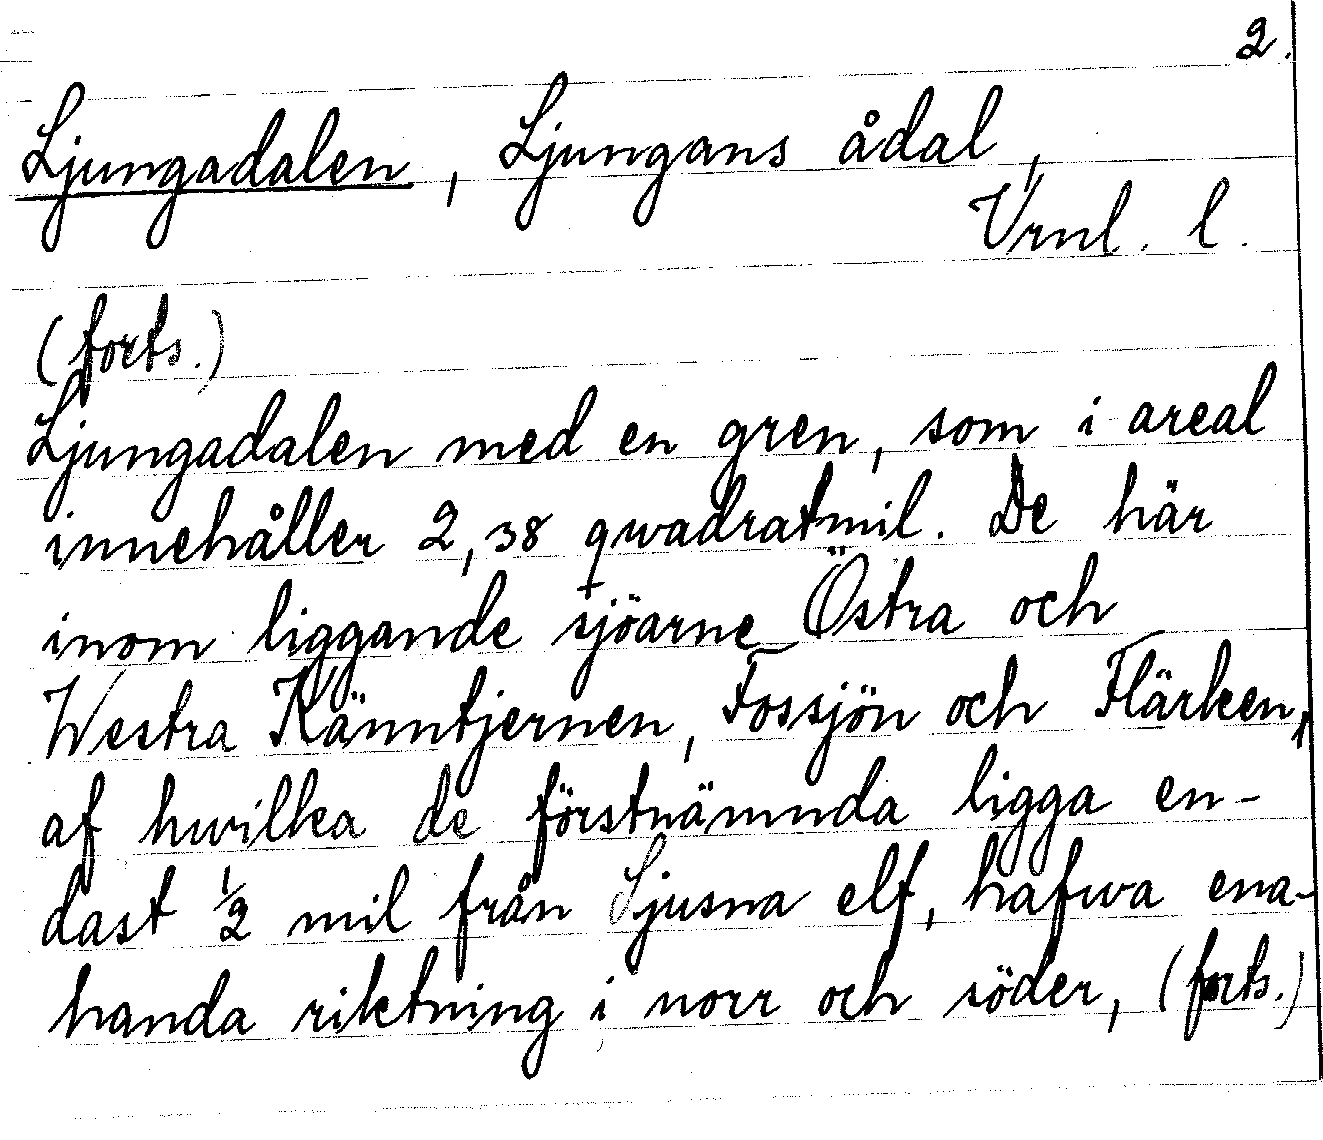 2.
Ljungadalen, Ljungans ådal,
Vrml. l.
(forts.)
Ljungadalen med en gren, som i areal
innehåller 2,38 qwadratmil. De här
inom liggande sjöarne Östra och
Westra Känntjernen, Fossjön och Flärken,
af hwilka de förstnämnda ligga en-
dast ½ mil från Ljusna elf, hafwa ena-
handa riktning i norr och söder, (forts.)